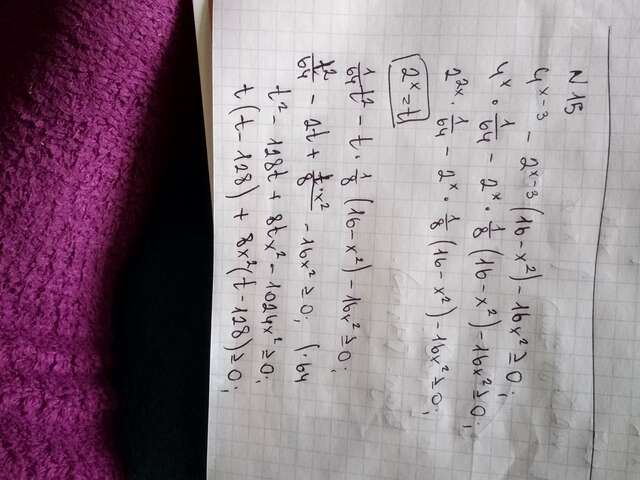 N 15
4^{x-3} - 2^{x-3}(16-x²) - 16x² ≥ 0;
4^x · 1/64 - 2^x · 1/8 (16-x²) - 16x² ≥ 0;
2^{2x} · 1/64 - 2^x · 1/8 (16-x²) - 16x² ≥ 0;
2^x = t
1/64 t² - t · 1/8 (16-x²) - 16x² ≥ 0;
t²/64 - 2t + t·x²/8 - 16x² ≥ 0; (·64
t² - 128t + 8tx² - 1024x² ≥ 0;
t(t-128) + 8x²(t-128) ≥ 0;